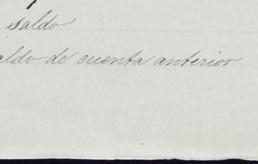 saldo
aldo de cuenta anterior